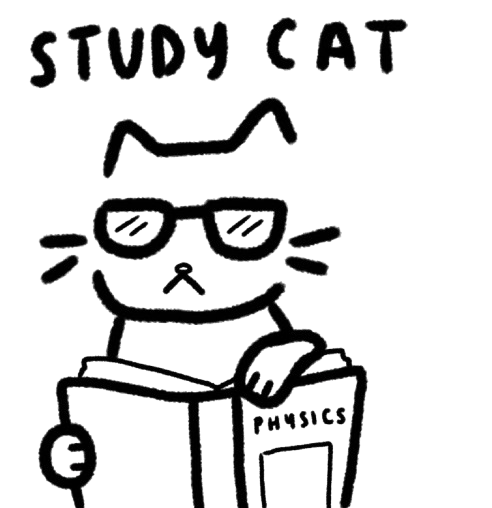 STUDY CAT
PHYSICS